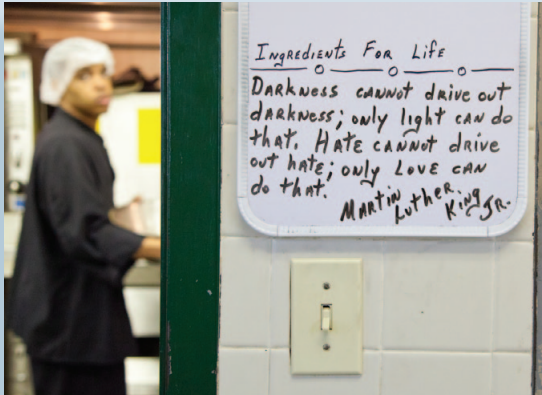 Ingredients For Life
Darkness cannot drive out
darkness; only light can do
that. Hate cannot drive
out hate; only Love can
do that.
Martin Luther King Jr.